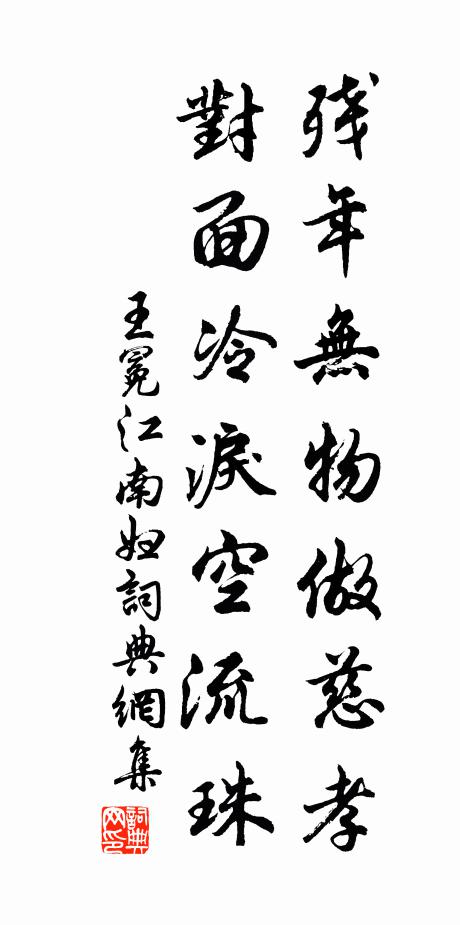 残年無物做慈孝
對面冷淚空流珠
王冕江南妇詞典網集
詞典
网印